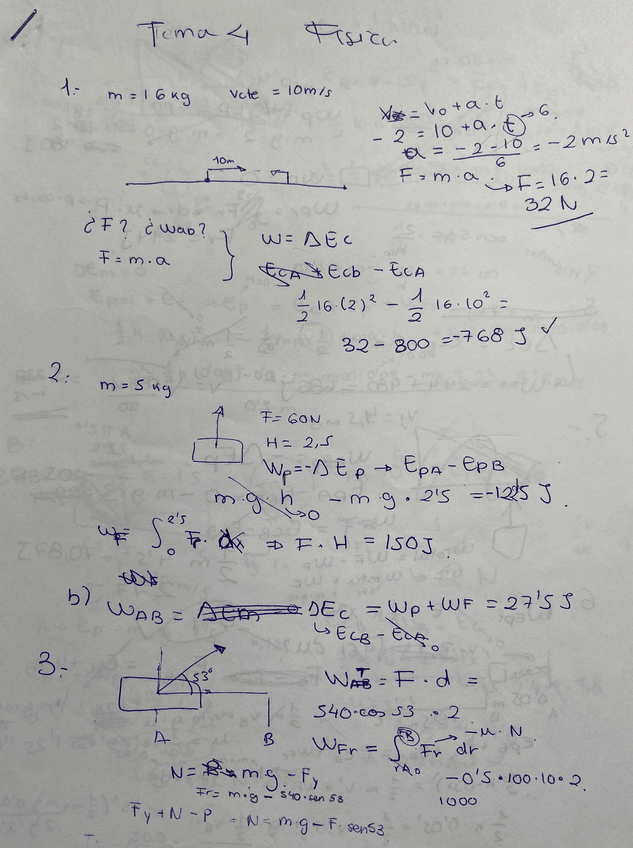 Tema 4 Física
1.- m = 16 kg vcte = 10m/s
Vx = Vo + a · t → 6.
- 2 = 10 + a · t
a = -2 - 10 / 6 = -2 m/s²
F = m · a
↳ F = 16 · 2 =
32 N
10m v
¿F? ¿Wab?
F = m · a
W = ΔEc
EcA → Ecb - EcA
1/2 16 · (2)² - 1/2 16 · 10² =
32 - 800 = -768 J ✓
2.- m = 5 kg
F = 60N
H = 2,5
Wp = -ΔEp → EpA - EpB
m · g · h → 0 - m · g · 2'5 = -125 J.
WF = ∫ 0 2'5 Fr · dx ⇒ F · H = 150J
b) WAB = ΔEm = ΔEc = Wp + WF = 27'5 J
↳ EcB - EcA 0
3.-
53°
A B
WAB T = F · d =
540 · cos 53 · 2
WFr = ∫ rA0 rB Fr dr → -μ · N
-0'5 · 100 · 10 · 2.
1000
N = m g - Fy
Fr = m · g - 540 · sen 53
Fy + N - P = N = m · g - F · sen53